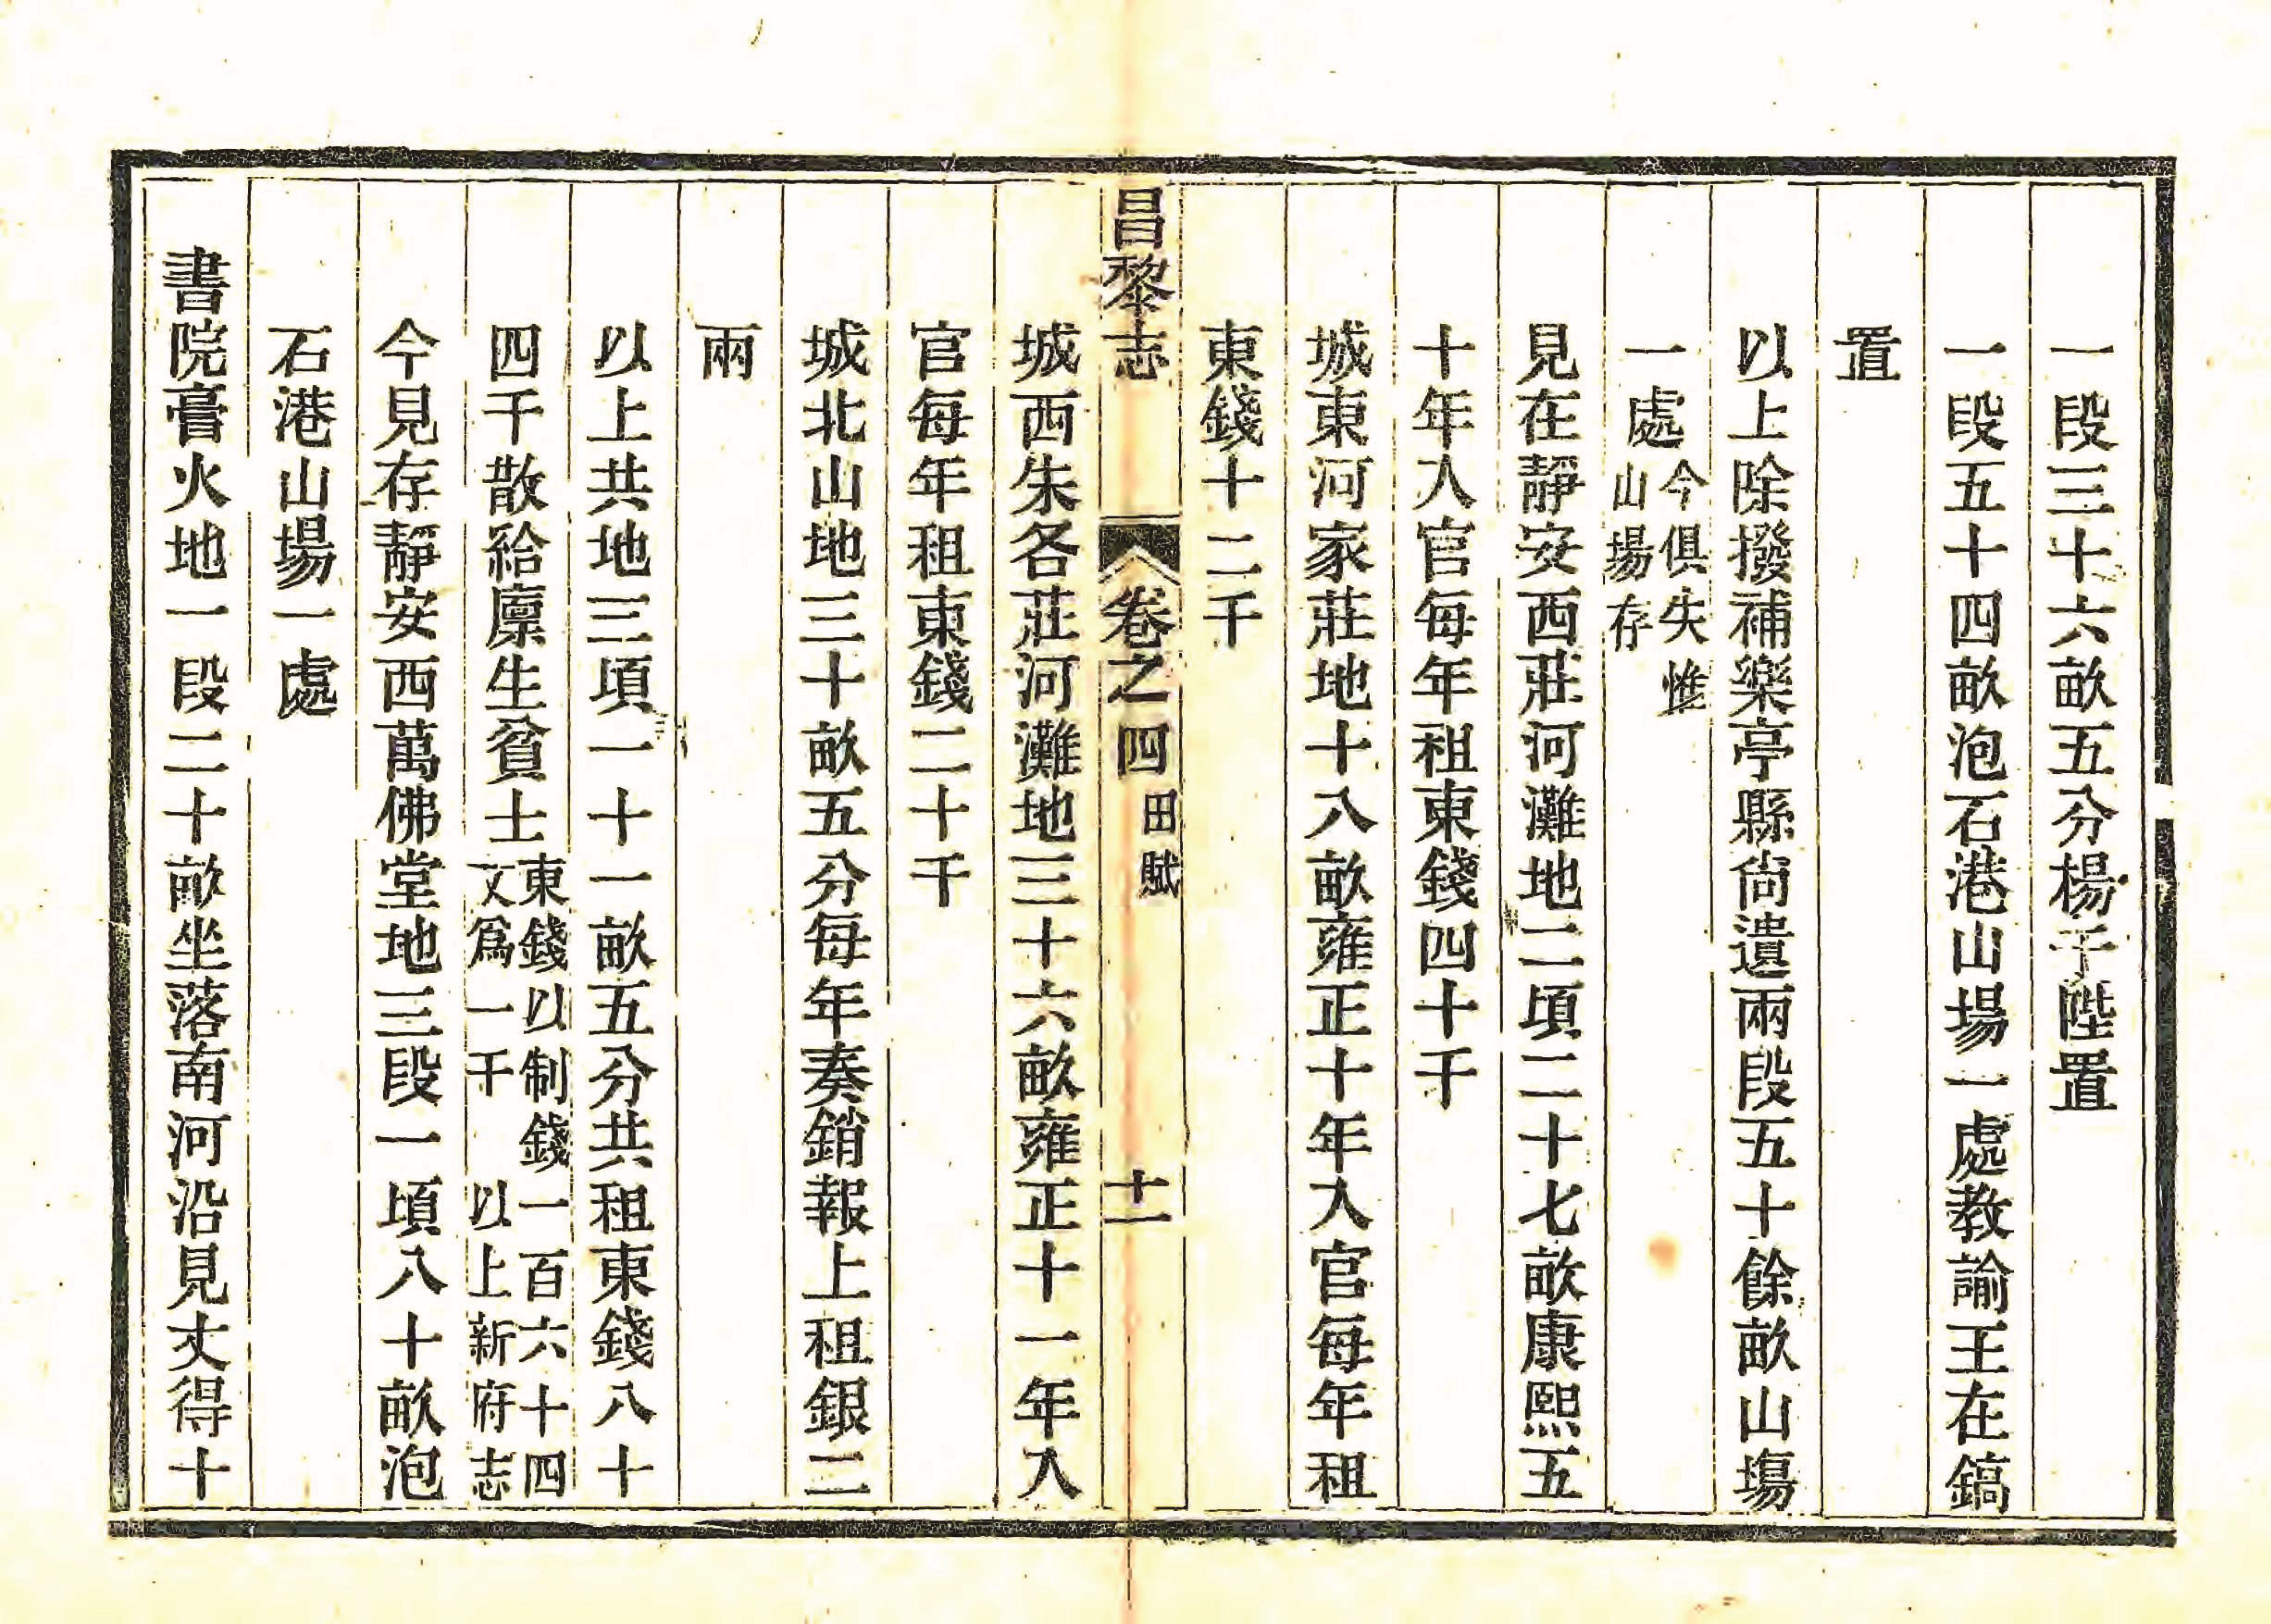 一段三十六畝五分楊于陛置
一段五十四畝泡石港山場一處教諭王在鎬
置
以上除撥補樂亭縣尙遺兩段五十餘畝山場
一處今俱失惟山場存
見在靜安西莊河灘地二頃二十七畝康熙五
十年入官每年租東錢四十千
城東河家莊地十八畝雍正十年入官每年租
東錢十二千
昌黎志 卷之四 田賦 十一
城西朱各莊河灘地三十六畝雍正十一年入
官每年租東錢二十千
城北山地三十畝五分每年奏銷報上租銀二
兩
以上共地三頃一十一畝五分共租東錢八十
四千散給廪生貧士東錢以制錢一百六十四文爲一千 以上新府志
今見存靜安西萬佛堂地三段一頃八十畝泡
石港山場一處
書院膏火地一段二十畝坐落南河沿見丈得十